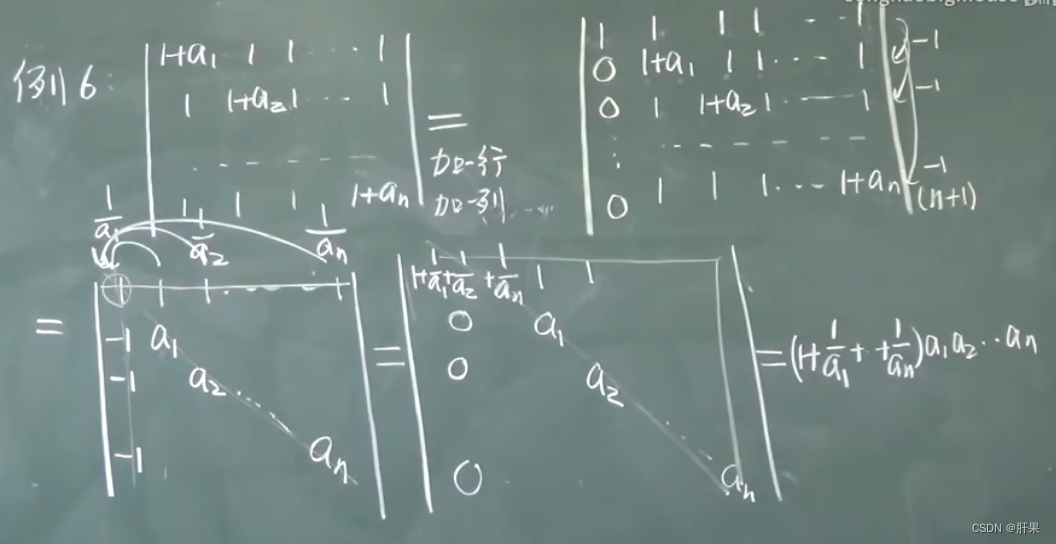 例6:
1+a₁ 1 1 ... 1
1 1+a₂ 1 ... 1
- - - - -
1 1 1 1+aₙ
=
加一行
加一列
1 1 1 1 ... 1
0 1+a₁ 1 1 ... 1
0 1 1+a₂ 1 ... 1
⋮ - - - - -
0 1 1 1 ... 1+aₙ
-1
-1
-1
(n+1)
1/a₁ 1/a₂ 1/aₙ
=
1 1 1 ... 1
-1 a₁
-1 a₂ ...
-1 aₙ
=
1+1/a₁+1/a₂ +1/aₙ 1 1
0 a₁
0 a₂ ...
0 aₙ
=(1+1/a₁+··+1/aₙ)a₁a₂··aₙ
CSDN @肝果